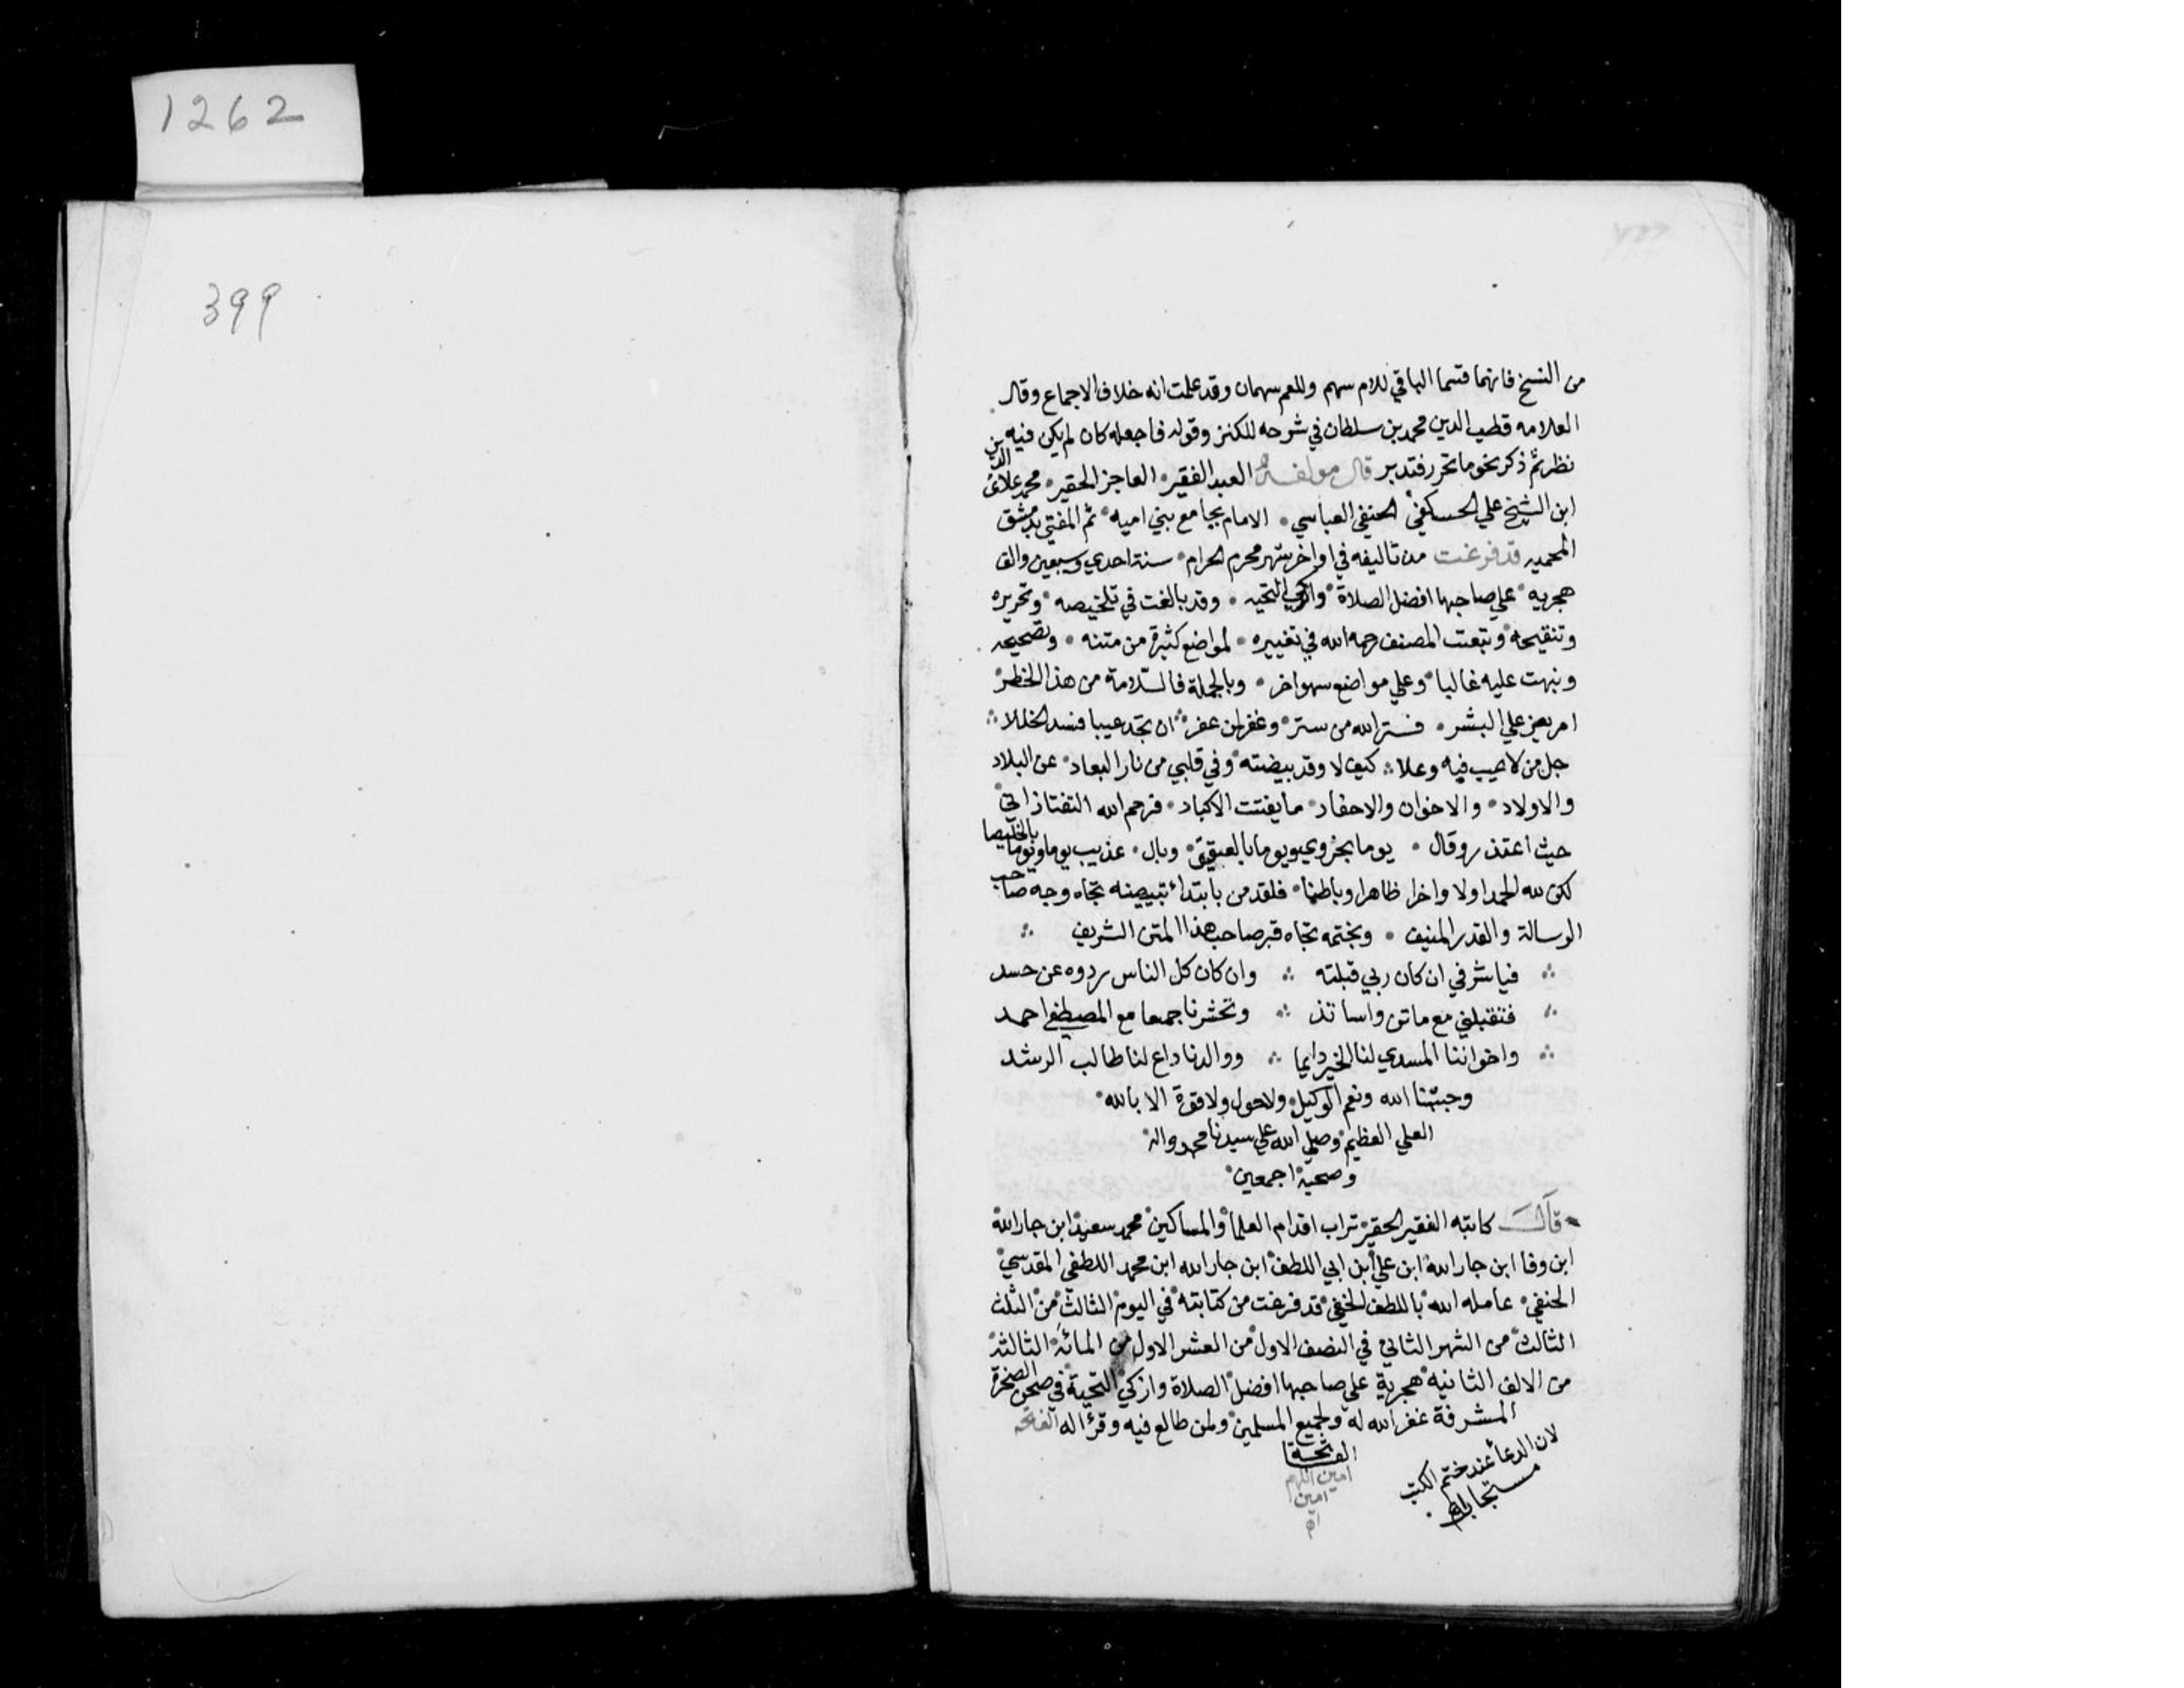 1262
399
من النسخ فانهما قسما الباقي للام سهم وللعم سهمان وقد علمت انه خلاف الاجماع وقال
العلامه قطب الدين محمد بن سلطان في شرحه للكنز وقوله فاجعله كان لم يكن فيه
نظر ثم ذكر نحو ما تحرر فتدبر قال مولفه العبد الفقير العاجز الحقير محمد علائ الدين بن
ابن الشيخ علي الحسكفي الحنفي العباسي الامام بجامع بني اميه ثم المفتي بدمشق
المحميه قد فرغت من تاليفه في اواخر شهر محرم الحرام سنة احدي وسبعين والف
هجريه علي صاحبها افضل الصلاة وازكي التحيه وقد بالغت في تلخيصه وتحريره
وتنقيحه وتبعت المصنف رحمه الله في تغييره لمواضع كثيرة من متنه وتصحيحه
ونبهت عليه غالبا وعلي مواضع سهو اخر وبالجملة فالسلامة من هذا الخطر
امر يعز علي البشر فستر الله من ستر وغفر لمن غفر ان تجد عيبا فسد الخللا
جل من لا عيب فيه وعلا كيف لا وقد بيضته وفي قلبي من نار البعاد عن البلاد
والاولاد والاخوان والاحفاد ما يفتت الاكباد فرحم الله التفتازاني
حيث اعتذر وقال يوما بحزوي ويوما بالعقيق وبال عذيب يوما ويوما بالخليصا
لكن لله الحمد اولا واخرا ظاهرا وباطنا فلقد من بابتداء تبييضه تجاه وجه صاحب
الرسالة والقدر المنيف وبختمه تجاه قبر صاحب هذا المتن الشريف
فيا شرفي ان كان ربي قبلته وان كان كل الناس ردوه عن حسد
فتقبلني مع ماتن واساتذ وتحشرنا جمعا مع المصطفي احمد
واخواننا المسدي لنا الخير دايما ووالدنا داع لنا طالب الرشد
وحسبنا الله ونعم الوكيل ولا حول ولا قوة الا بالله
العلي العظيم وصلي الله علي سيدنا محمد واله
وصحبه اجمعين
قال كاتبه الفقير الحقير تراب اقدام العلما والمساكين محمد سعيد ابن جار الله
ابن وفا ابن جار الله ابن علي ابن ابي اللطف ابن جار الله ابن محمد اللطفي المقدسي
الحنفي عامله الله باللطف الخفي قد فرغت من كتابته في اليوم الثالث من الثلث
الثالث من الشهر الثاني في النصف الاول من العشر الاول من المائة الثالثة
من الالف الثانيه هجرية علي صاحبها افضل الصلاة وازكي التحية في صحن الصخرة
المشرفة غفر الله له ولجميع المسلمين ولمن طالع فيه وقرأ له الفاتحه
الفاتحة
امين اللهم
امين
اه
لان الدعأ عند ختم الكتب
مستجاب اه